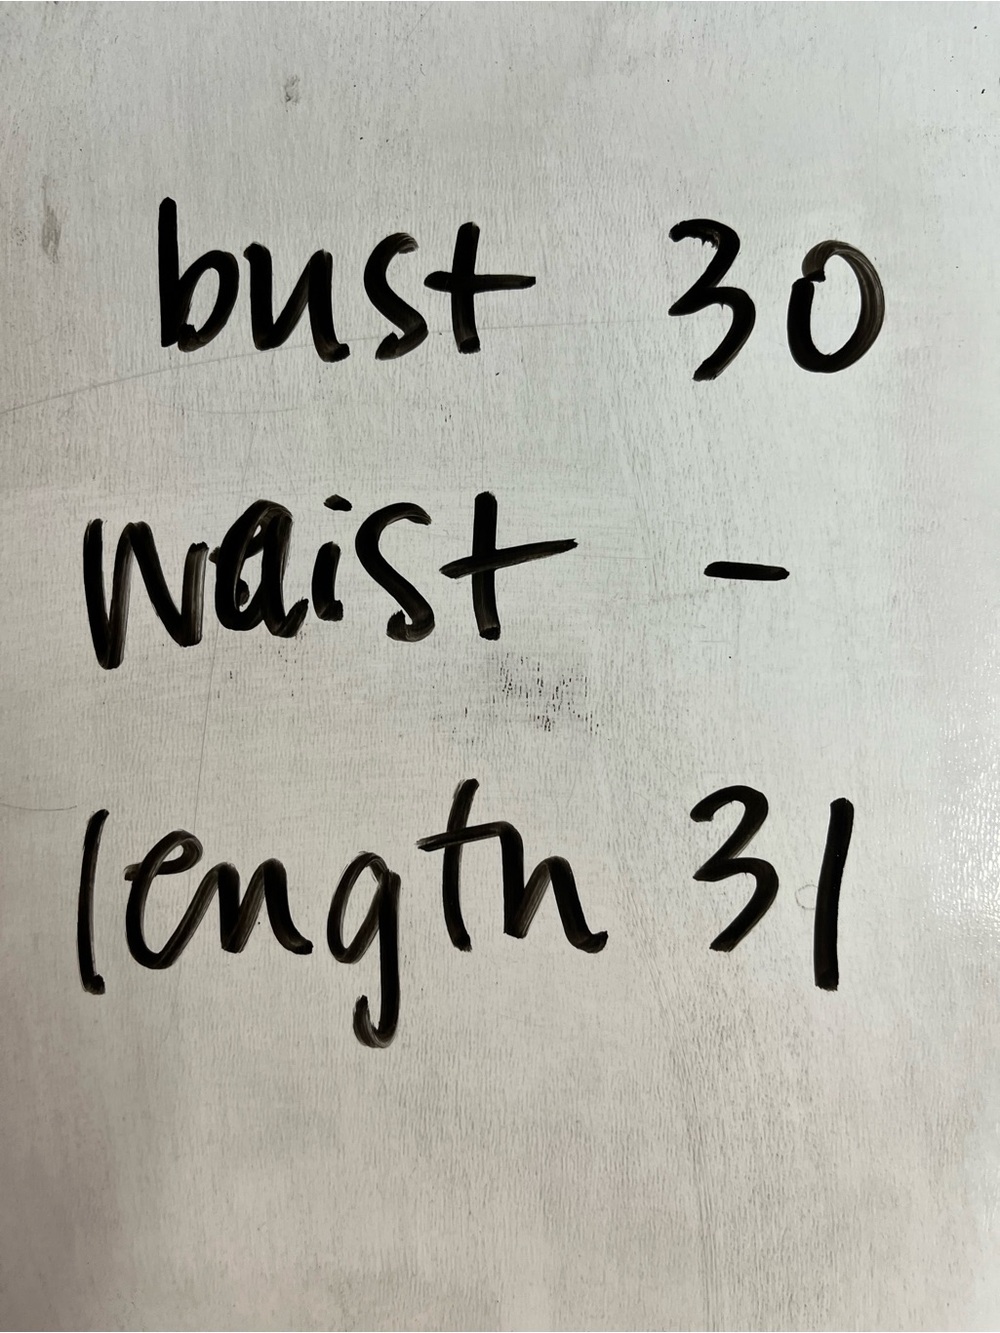 bust 30
waist -
length 31